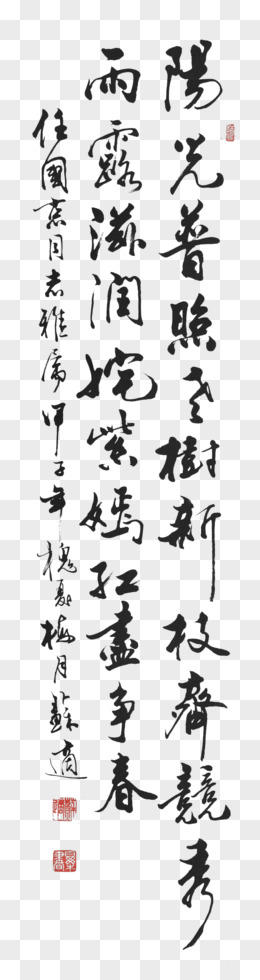 陽光普照老樹新枝齊競秀
雨露滋潤姹紫嫣紅盡爭春
任國同志雅屬甲子年槐夏梅月蘇適